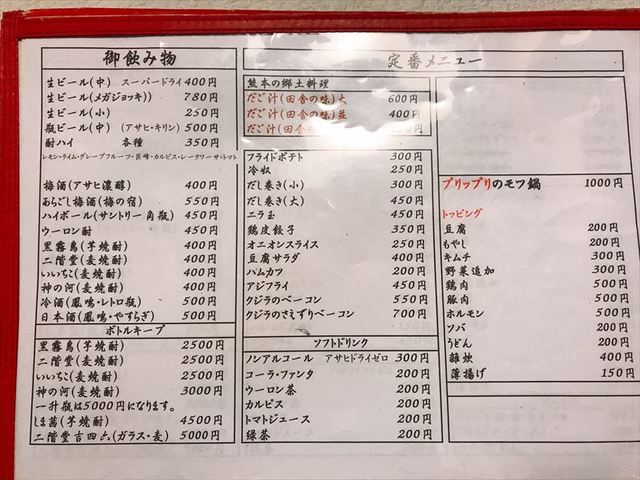 御飲み物
生ビール(中) スーパードライ 400円
生ビール(メガジョッキ)) 780円
生ビール(小) 250円
瓶ビール(中) (アサヒ・キリン) 500円
酎ハイ 各種 350円
レモン・ライム・グレープフルーツ・巨峰・カルピス・レークワーサ・トマト
梅酒(アサヒ濃醇) 400円
あらごし梅酒(梅の宿) 550円
ハイボール(サントリー角瓶) 450円
ウーロン酎 450円
黒霧島(芋焼酎) 400円
二階堂(麦焼酎) 400円
いいちこ(麦焼酎) 400円
神の河(麦焼酎) 400円
冷酒(鳳鳴・レトロ瓶) 500円
日本酒(鳳鳴・やすらぎ) 500円
ボトルキープ
黒霧島(芋焼酎) 2500円
二階堂(麦焼酎) 2500円
いいちこ(麦焼酎) 2500円
神の河(麦焼酎) 3000円
一升瓶は5000円になります。
しま茜(芋焼酎) 4500円
二階堂吉四六(ガラス・麦) 5000円
定番メニュー
熊本の郷土料理
だご汁(田舎の味)大 600円
だご汁(田舎の味)並 400円
だご汁(田舎の
フライドポテト 300円
冷奴 250円
だし巻き(小) 300円
だし巻き(大) 450円
ニラ玉 450円
鶏皮餃子 350円
オニオンスライス 250円
豆腐サラダ 400円
ハムカツ 200円
アジフライ 450円
クジラのベーコン 550円
クジラのさえずりベーコン 700円
ソフトドリンク
ノンアルコール アサヒドライゼロ 300円
コーラ・ファンタ 200円
ウーロン茶 200円
カルピス 200円
トマトジュース 200円
緑茶 200円
プリップリのモツ鍋 1000円
トッピング
豆腐 200円
もやし 200円
キムチ 300円
野菜追加 300円
鶏肉 500円
豚肉 500円
ホルモン 500円
ソバ 200円
うどん 200円
雑炊 400円
薄揚げ 150円